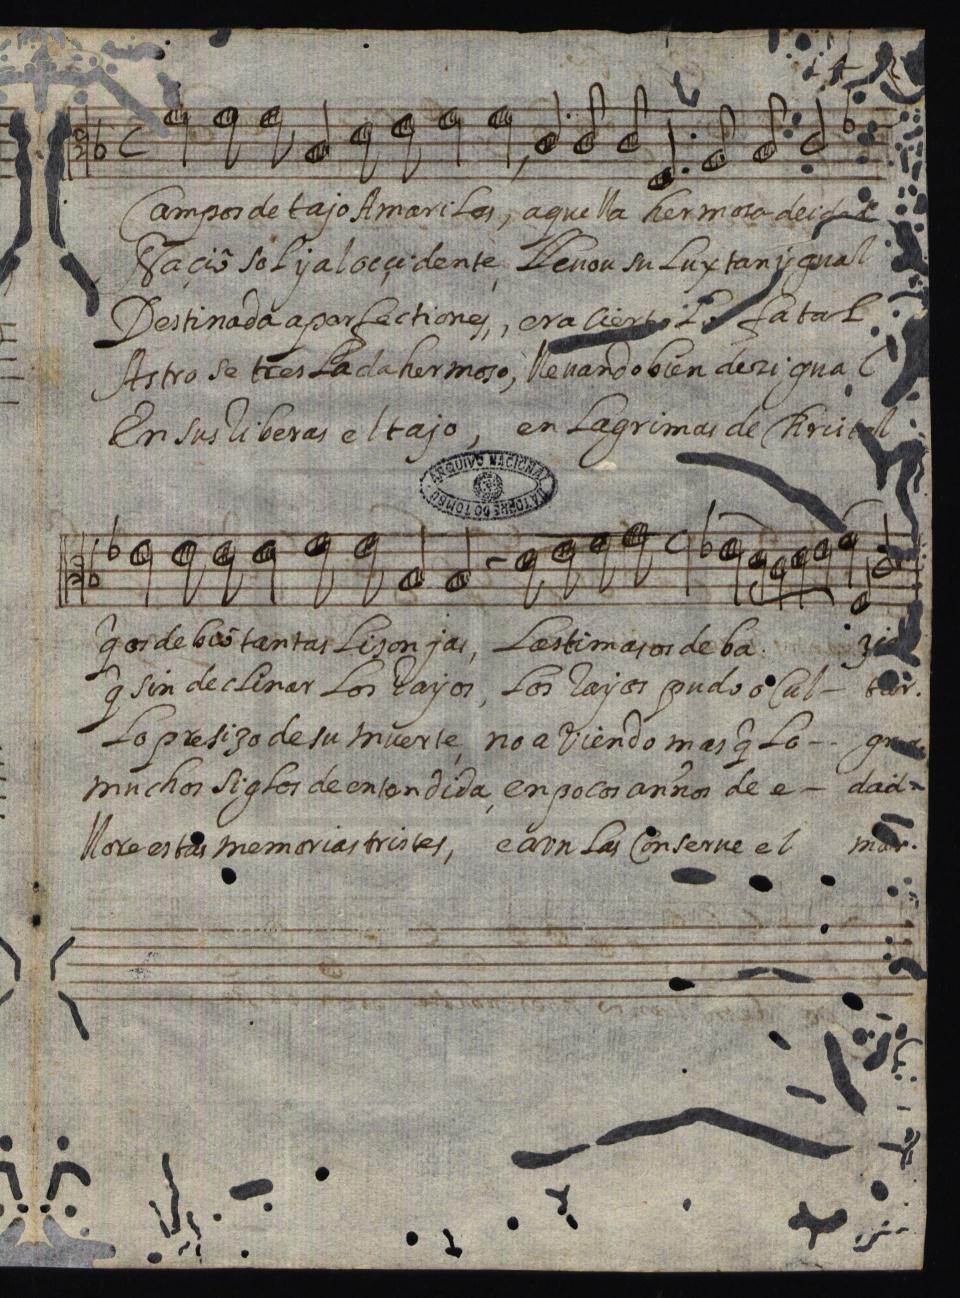 Campos de tajo Amarilos, aquella hermosa
Naçio sol y al occidente, Lleuou su Lux tan ygual
Destinada a perfectiones, era cierto fatal
Astro se tres Lada hermoso, lleuando bien dezigual
En sus riberas el tajo, en Lagrimas de Christal
ARQUIVO NACIONAL DA TORRE DO TOMBO
q̃ os debio tantas Lisonjas, Lastimas os deba
q̃ sin declinar Los rayos, Los rayos pudo ocul- tar.
Lo presizo de su muerte, no aviendo mas q̃ Lo--
muchos siglos de entendida, en pocos anños de e- dad-
llore estas memorias tristes, e aun Las conserue el mar.